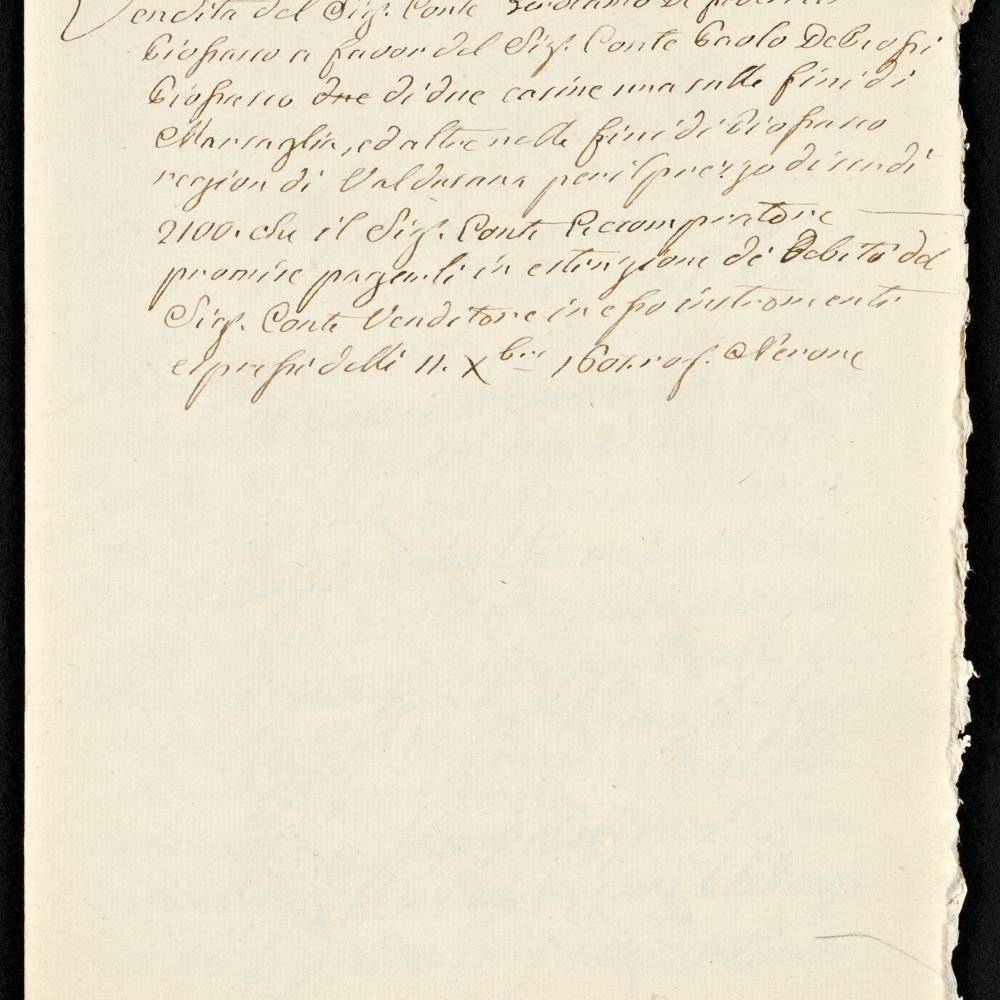 Vendita del Sig.r Conte
Piossasco a favor del Sig.r Conte Paolo DeRossi
Piossasco due di due cassine una sulle fini di
Marsaglia, ed altre nelle fini di Piossasco
region di Valdusana per il prezzo di scudi
2100. che il Sig.r Conte compratore
promise pagarli in estinzione di Debito del
Sig.r Conte Venditore in esso instromento
espressi delli 11. Xbre 1601. rog.